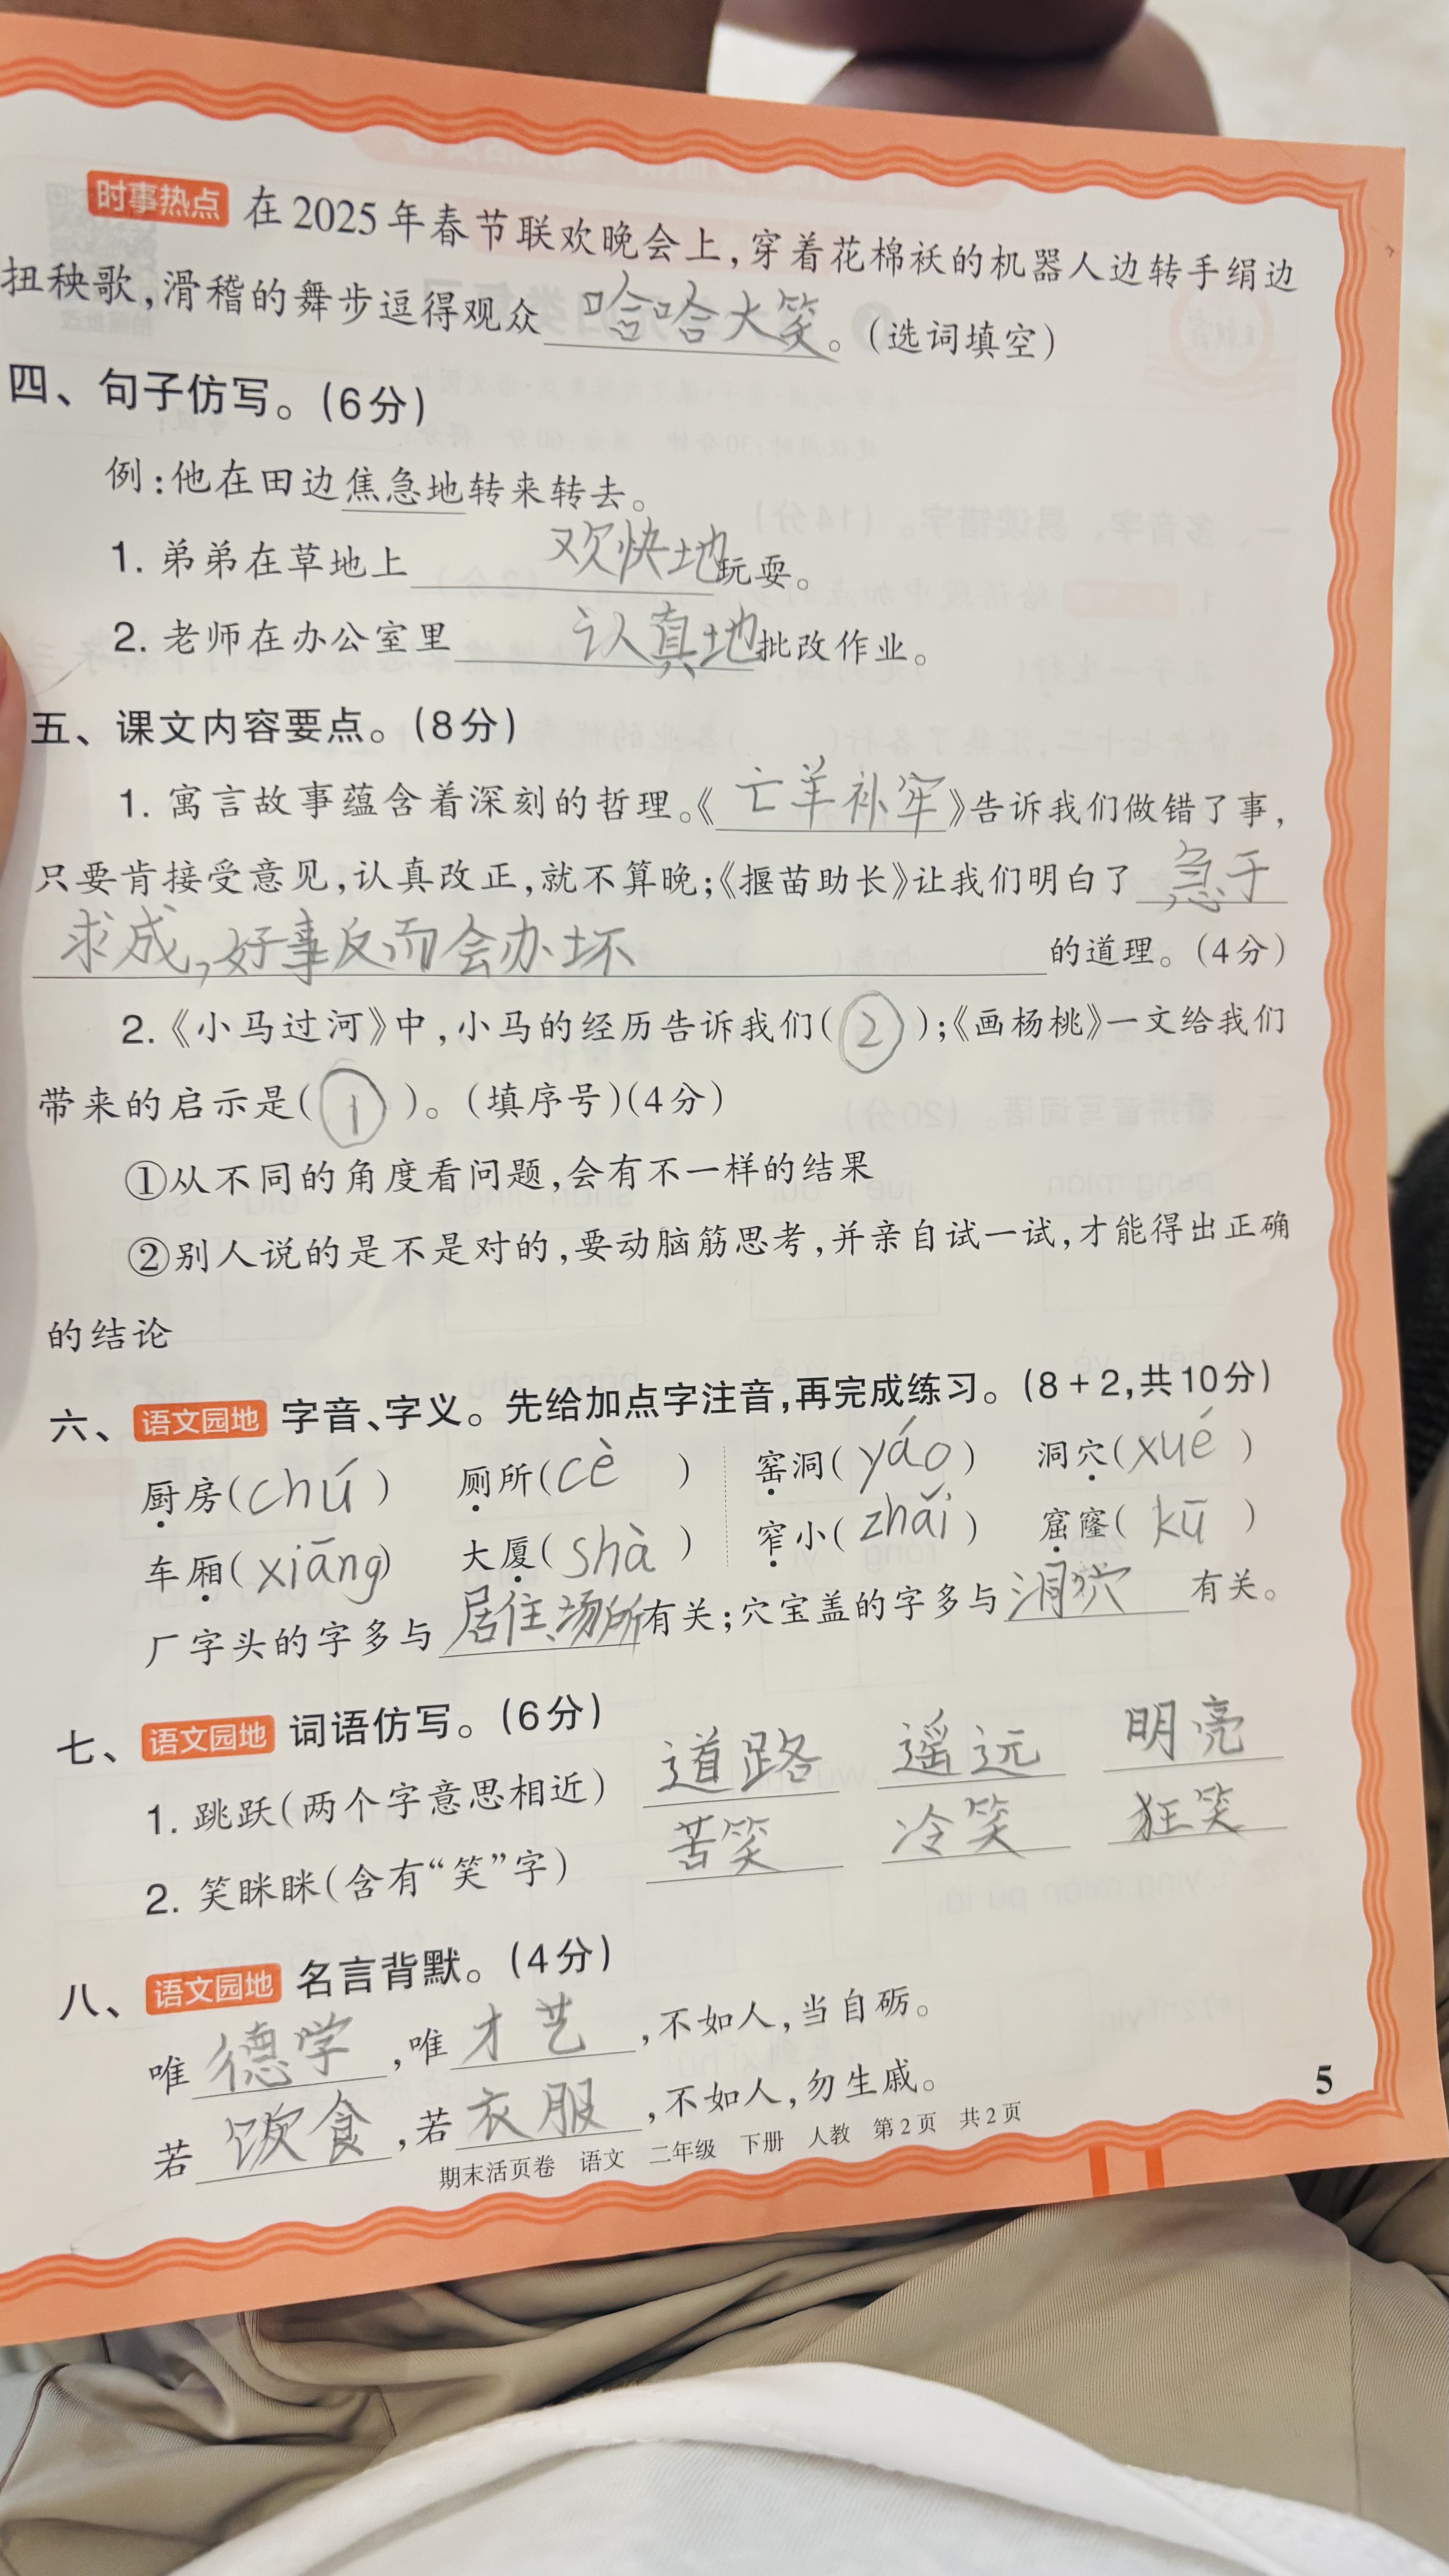 时事热点 在2025年春节联欢晚会上,穿着花棉袄的机器人边转手绢边
扭秧歌,滑稽的舞步逗得观众哈哈大笑。(选词填空)
四、句子仿写。(6分)
例:他在田边焦急地转来转去。
1. 弟弟在草地上欢快地玩耍。
2. 老师在办公室里认真地批改作业。
五、课文内容要点。(8分)
1. 寓言故事蕴含着深刻的哲理。《亡羊补牢》告诉我们做错了事,
只要肯接受意见,认真改正,就不算晚;《揠苗助长》让我们明白了急于
求成,好事反而会办坏的道理。(4分)
2.《小马过河》中,小马的经历告诉我们(②);《画杨桃》一文给我们
带来的启示是(①)。(填序号)(4分)
①从不同的角度看问题,会有不一样的结果
②别人说的是不是对的,要动脑筋思考,并亲自试一试,才能得出正确
的结论
六、语文园地 字音、字义。先给加点字注音,再完成练习。(8+2,共10分)
厨房(chú) 厕所(cè) 窑洞(yáo) 洞穴(xué)
车厢(xiāng) 大厦(shà) 窄小(zhǎi) 窟窿(kū)
厂字头的字多与居住场所有关;穴宝盖的字多与洞穴有关。
七、语文园地 词语仿写。(6分)
1. 跳跃(两个字意思相近) 道路 遥远 明亮
2. 笑眯眯(含有“笑”字) 苦笑 冷笑 狂笑
八、语文园地 名言背默。(4分)
唯德学,唯才艺,不如人,当自砺。
若饮食,若衣服,不如人,勿生戚。
期末活页卷 语文 二年级 下册 人教 第2页 共2页
5